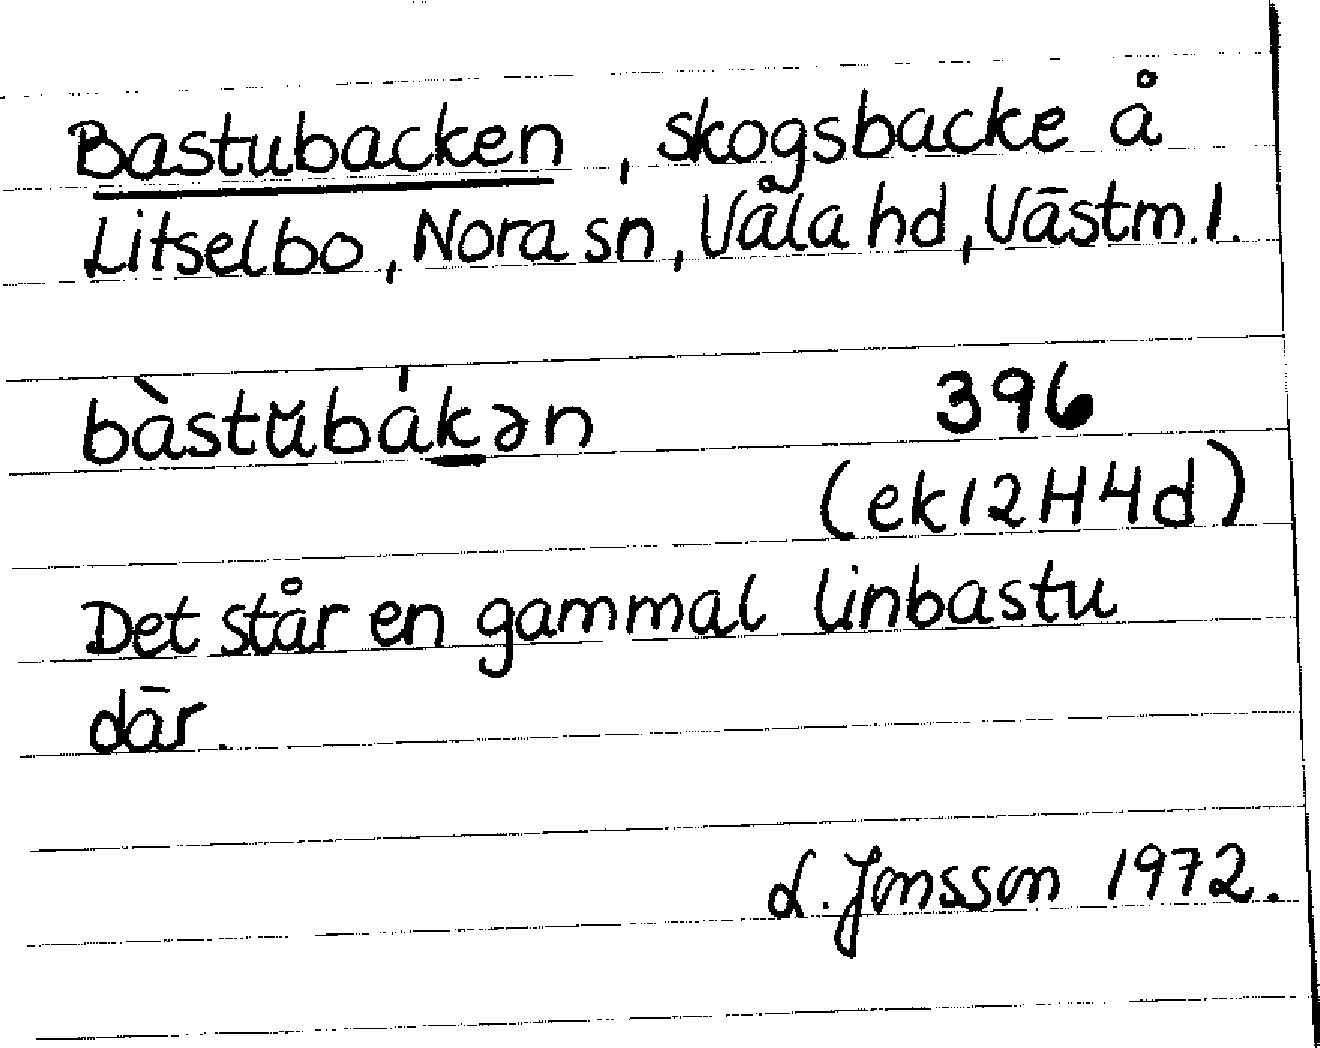 Bastubacken, skogsbacke å
Litselbo, Nora sn, Våla hd, Västm.l.
bàstŭbák̲ən 396
(ek12H4d)
Det står en gammal linbastu
där.
L. Jonsson 1972.